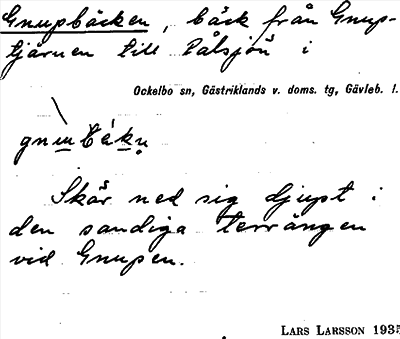 Gnupbäcken, bäck från Gnup-
tjärnen till Pålsjön i
Ockelbo sn, Gästriklands v. doms. tg, Gävleb. l.
Skär ned sig djupt i
den sandiga terrängen
vid Gnupen.
LARS LARSSON 1935